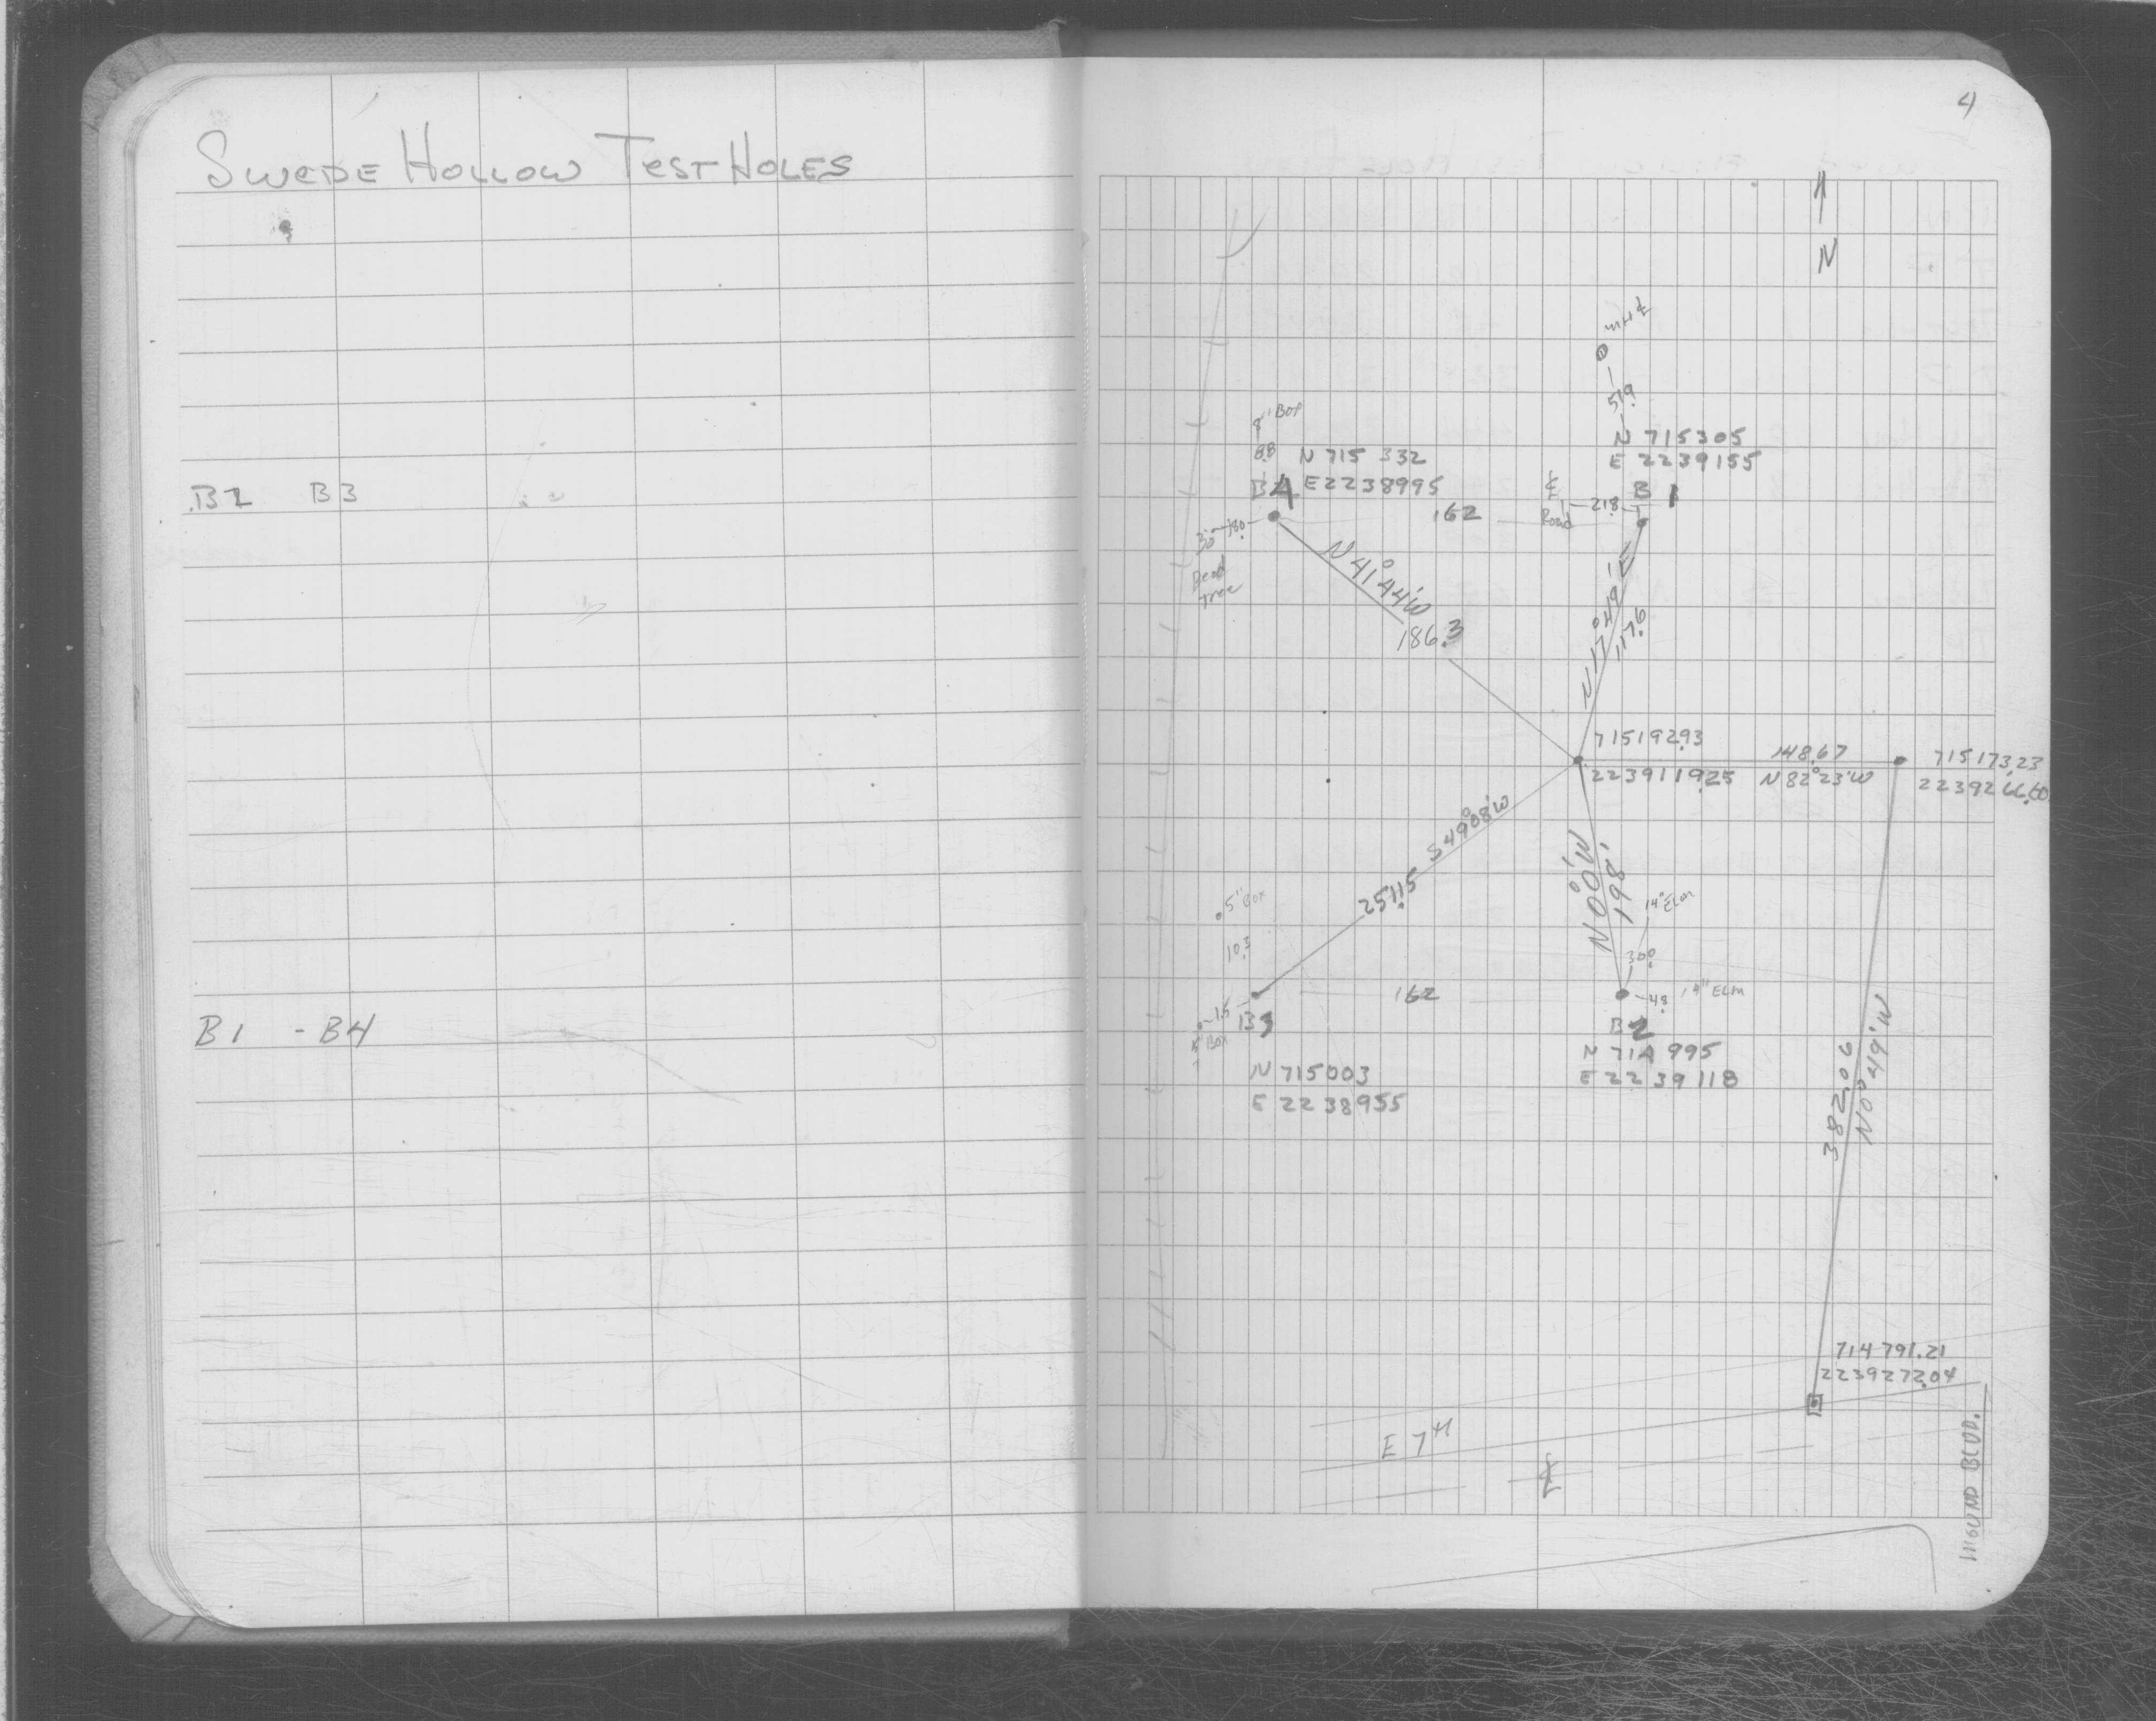 SWEDE HOLLOW TEST HOLES
B2 B3
B1 - B4
4
N
MH
519
8" Box
88
N 715 332
B4 E2238995
N 715305
E 2239155
℄
Road
218
B 1
162
180
30"
Dead
tree
N 41° 44' W
186.3
N 17° 49' E
117.6
715192.93
2239119.25
148.67
N 82° 23' W
715173.23
2239266.60
S 49° 08' W
251.15
N 0° 0' W
198'
5" Box
10.3
14" Elm
30.0
4.8 14" ELM
162
1.5
B3
Box
N 715003
E 2238955
B2
N 714 995
E 2239118
382.06
N 0° 49' W
714 791.21
2239272.04
E 7TH
℄
MOUND BLVD.